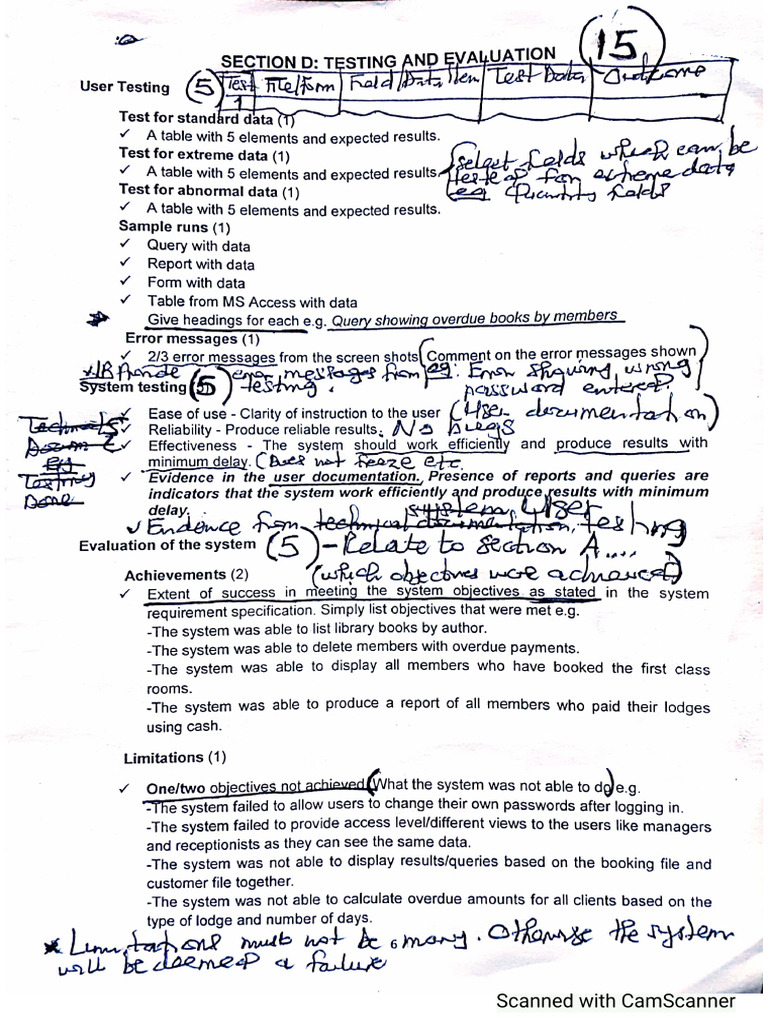 SECTION D: TESTING AND EVALUATION (15)
User Testing (5)
Test File/Form Field/Data Item Test Data Outcome
1
Test for standard data (1)
✓ A table with 5 elements and expected results.
Test for extreme data (1)
✓ A table with 5 elements and expected results.
select fields which can be
tested for extreme data
eg Quantity fields
Test for abnormal data (1)
✓ A table with 5 elements and expected results.
Sample runs (1)
✓ Query with data
✓ Report with data
✓ Form with data
✓ Table from MS Access with data
Give headings for each e.g. Query showing overdue books by members
Error messages (1)
✓ 2/3 error messages from the screen shots (Comment on the error messages shown)
NB Provide error messages from testing.
eg: Error showing wrong
password entered.
System testing (5)
✓ Ease of use - Clarity of instruction to the user (User documentation)
✓ Reliability - Produce reliable results. No bugs
✓ Effectiveness - The system should work efficiently and produce results with
minimum delay. (Does not freeze etc.
Testing
Done
✓ Evidence in the user documentation. Presence of reports and queries are
indicators that the system work efficiently and produce results with minimum
delay.
✓ Evidence from technical documentation, system User testing
Evaluation of the system (5) - Relate to section A....
Achievements (2) (which objectives were achieved)
✓ Extent of success in meeting the system objectives as stated in the system
requirement specification. Simply list objectives that were met e.g.
-The system was able to list library books by author.
-The system was able to delete members with overdue payments.
-The system was able to display all members who have booked the first class
rooms.
-The system was able to produce a report of all members who paid their lodges
using cash.
Limitations (1)
✓ One/two objectives not achieved (What the system was not able to do) e.g.
-The system failed to allow users to change their own passwords after logging in.
-The system failed to provide access level/different views to the users like managers
and receptionists as they can see the same data.
-The system was not able to display results/queries based on the booking file and
customer file together.
-The system was not able to calculate overdue amounts for all clients based on the
type of lodge and number of days.
* Limitations must not be many. Otherwise the system
will be deemed a failure
Scanned with CamScanner